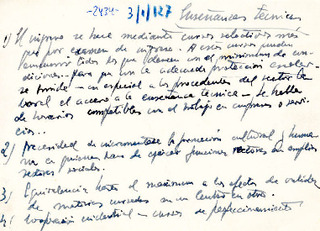 -2434- 3/9/127 Enseñanzas técnicas
1) El ingreso se hace mediante cursos selectivos más
que por examen de ingreso. A estos cursos pueden
concurrir todos los que llenen un mínimum de con-
diciones. Para que una adecuada protección escolar
se tiende - en especial a los procedentes del sector la-
boral el acceso a la enseñanza técnica - se hable
de horarios compatibles con el trabajo en empresas o servi-
cios.
2) Necesidad de incrementar la formación cultural y huma-
na en quienes han de ejercer funciones rectoras en amplios
sectores sociales.
3) Equivalencia hasta el máximum a los efectos de validez
de materias cursadas en un centro en otro.
4) Cooperación industrial - cursos de perfeccionamiento